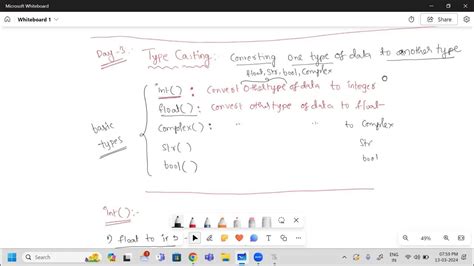 Microsoft Whiteboard
Whiteboard 1
Day-3:- Type Casting: Converting one type of data to another type
float, str, bool, Complex
int() : Convert Other type of data to integer
float() : Convert other type of data to float
Complex() : " " to Complex
basic types
str() str
bool() bool
int() :-
1) float to
49%
ENG
IN
07:59 PM
13-03-2024